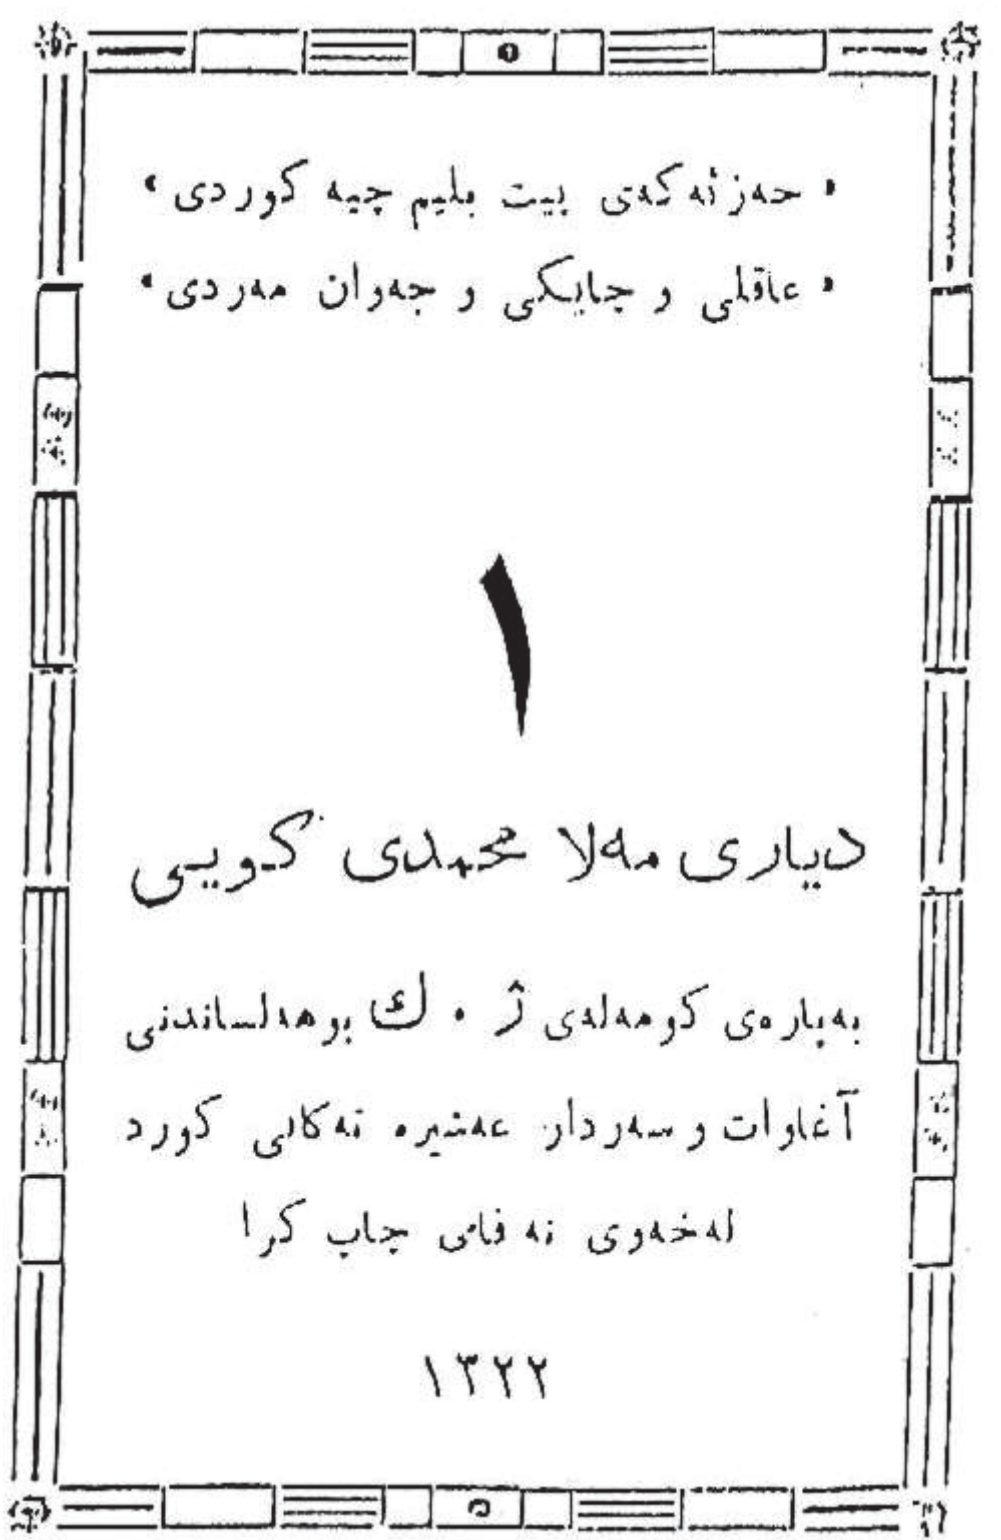 « حەزئەکەی پیت بلیم چیە کوردی »
« عاقلی و چابکی و جەوان مەردی »
١
دیاری مەلا محمدی کویی
بەپارەی کومەلەی ژ ٠ ك بوهەلساندنی
آغاوات و سەردار عەشیرە تەکانی کورد
لەخەوی نە فامی چاپ کرا
١٣٢٢